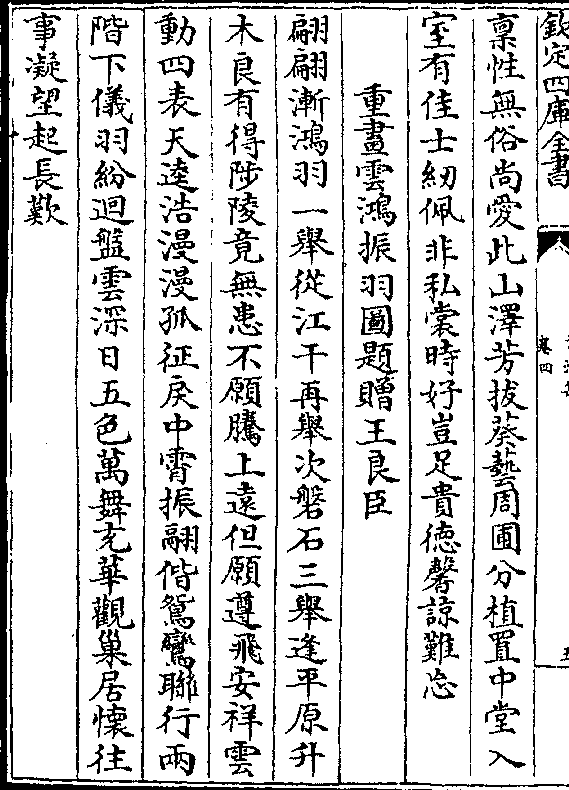 欽定四庫全書
卷四
稟性無俗尚愛此山澤芳拔葵藝周圃分植置中堂入
室有佳士紉佩非私棠時好豈足貴徳馨諒難忘
重畫雲鴻振羽圖題贈王良臣
翩翩漸鴻羽一舉從江干再舉次磐石三舉逢平原升
木良有得陟陵竟無患不願騰上遠但願遵飛安祥雲
動四表天逵浩漫漫孤征戾中霄振翮偕鴛鸞聯行兩
階下儀羽紛迴盤雲深日五色萬舞充華觀巢居懐往
事凝望起長歎